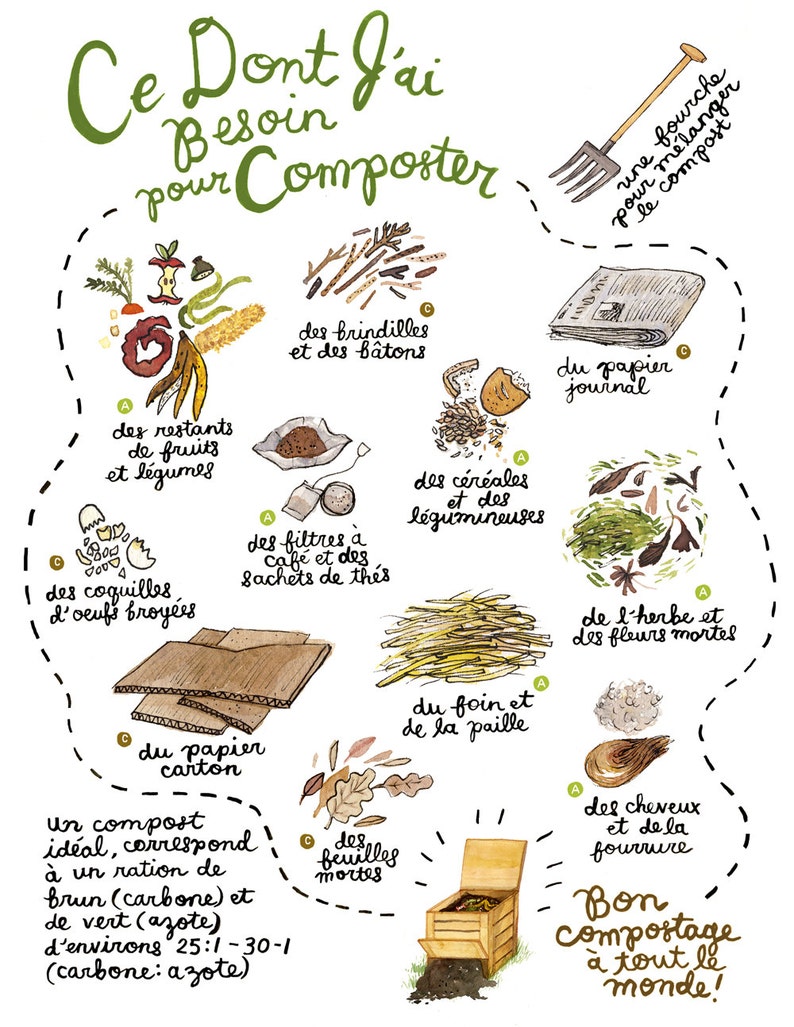 Ce Dont J'ai
Besoin
pour Composter
une fourche
pour mélanger
le compost
C
des brindilles
et des bâtons
C
du papier
journal
A
des restants
de fruits
et légumes
A
des filtres à
café et des
sachets de thés
A
des céréales
et des
légumineuses
A
de l'herbe et
des fleurs mortes
C
des coquilles
d'oeufs broyées
C
du papier
carton
A
du foin et
de la paille
A
des cheveux
et de la
fourrure
C
des
feuilles
mortes
un compost
idéal, correspond
à un ration de
brun (carbone) et
de vert (azote)
d'environs 25:1-30-1
(carbone: azote)
Bon
compostage
à tout le
monde!